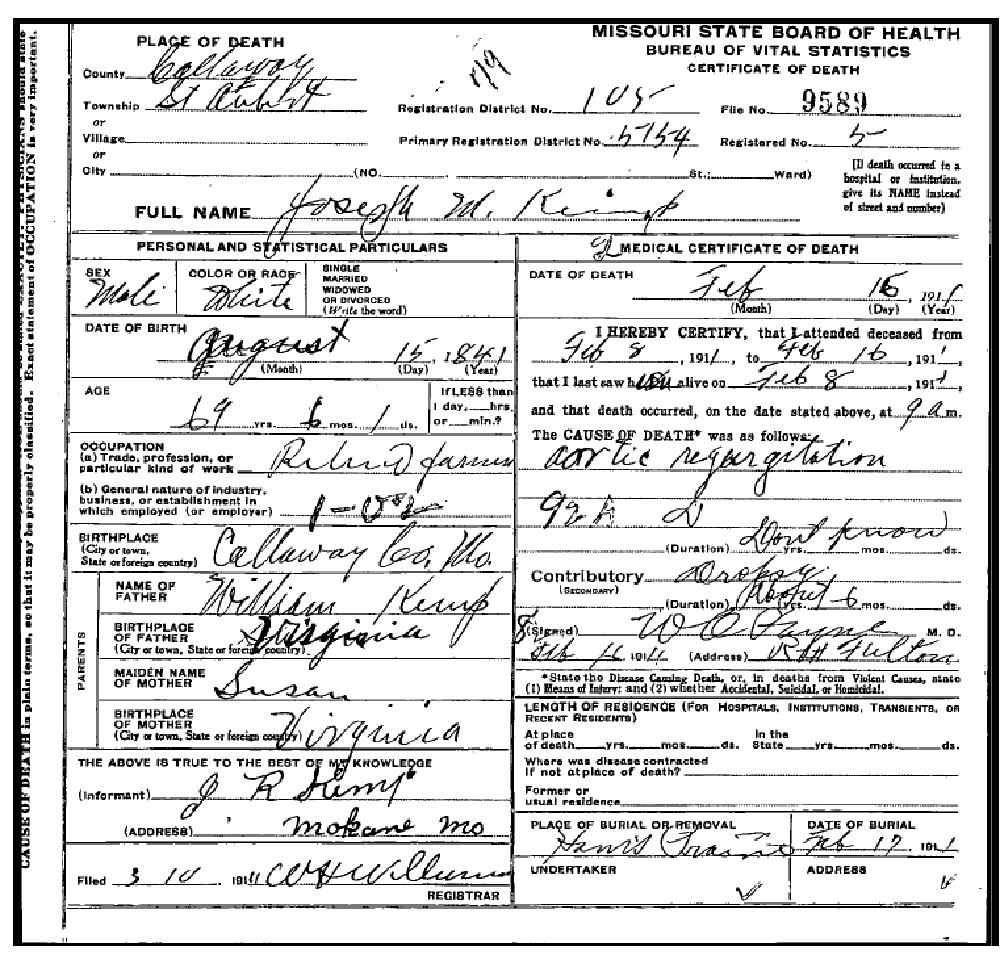 CAUSE OF DEATH in plain terms, so that it may be properly classified. Exact statement of OCCUPATION is very important.
MISSOURI STATE BOARD OF HEALTH
BUREAU OF VITAL STATISTICS
CERTIFICATE OF DEATH
PLACE OF DEATH
County Callaway
Township St Aubert
or
Village
or
City (NO. St.; Ward)
Registration District No. 105 File No. 9589
Primary Registration District No. 5154 Registered No. 5
[If death occurred in a
hospital or institution,
give its NAME instead
of street and number]
FULL NAME Joseph M. Kemp
PERSONAL AND STATISTICAL PARTICULARS
SEX
Male
COLOR OR RACE
White
SINGLE
MARRIED
WIDOWED
OR DIVORCED
(Write the word)
DATE OF BIRTH
August 15, 1841
(Month) (Day) (Year)
AGE
69 yrs. 6 mos. 1 ds.
If LESS than
1 day, hrs.
or min.?
OCCUPATION
(a) Trade, profession, or
particular kind of work Retired farmer
(b) General nature of industry,
business, or establishment in
which employed (or employer)
BIRTHPLACE
(City or town,
State or foreign country) Callaway Co, Mo.
PARENTS
NAME OF
FATHER William Kemp
BIRTHPLACE
OF FATHER
(City or town, State or foreign country) Virginia
MAIDEN NAME
OF MOTHER Susan
BIRTHPLACE
OF MOTHER
(City or town, State or foreign country) Virginia
THE ABOVE IS TRUE TO THE BEST OF MY KNOWLEDGE
(Informant) J R Kemp
(ADDRESS) Mokane Mo
Filed 3 10 1911
REGISTRAR
MEDICAL CERTIFICATE OF DEATH
DATE OF DEATH
Feb 16, 1911
(Month) (Day) (Year)
I HEREBY CERTIFY, that I attended deceased from
Feb 8, 1911, to Feb 16, 1911
that I last saw him alive on Feb 8, 1911,
and that death occurred, on the date stated above, at 9 a.m.
The CAUSE OF DEATH* was as follows:
aortic regurgitation
(Duration) Dont know yrs. mos. ds.
Contributory Dropsy
(SECONDARY)
(Duration) About yrs. 6 mos. ds.
(Signed) W O Payne M. D.
Feb 16 1911 (Address) Fulton
*State the Disease Causing Death, or, in deaths from Violent Causes, state
(1) Means of Injury; and (2) whether Accidental, Suicidal, or Homicidal.
LENGTH OF RESIDENCE (FOR HOSPITALS, INSTITUTIONS, TRANSIENTS, OR
RECENT RESIDENTS)
At place
of death yrs. mos. ds.
In the
State yrs. mos. ds.
Where was disease contracted
if not at place of death?
Former or
usual residence
PLACE OF BURIAL OR REMOVAL
DATE OF BURIAL
Feb 17 1911
UNDERTAKER
ADDRESS